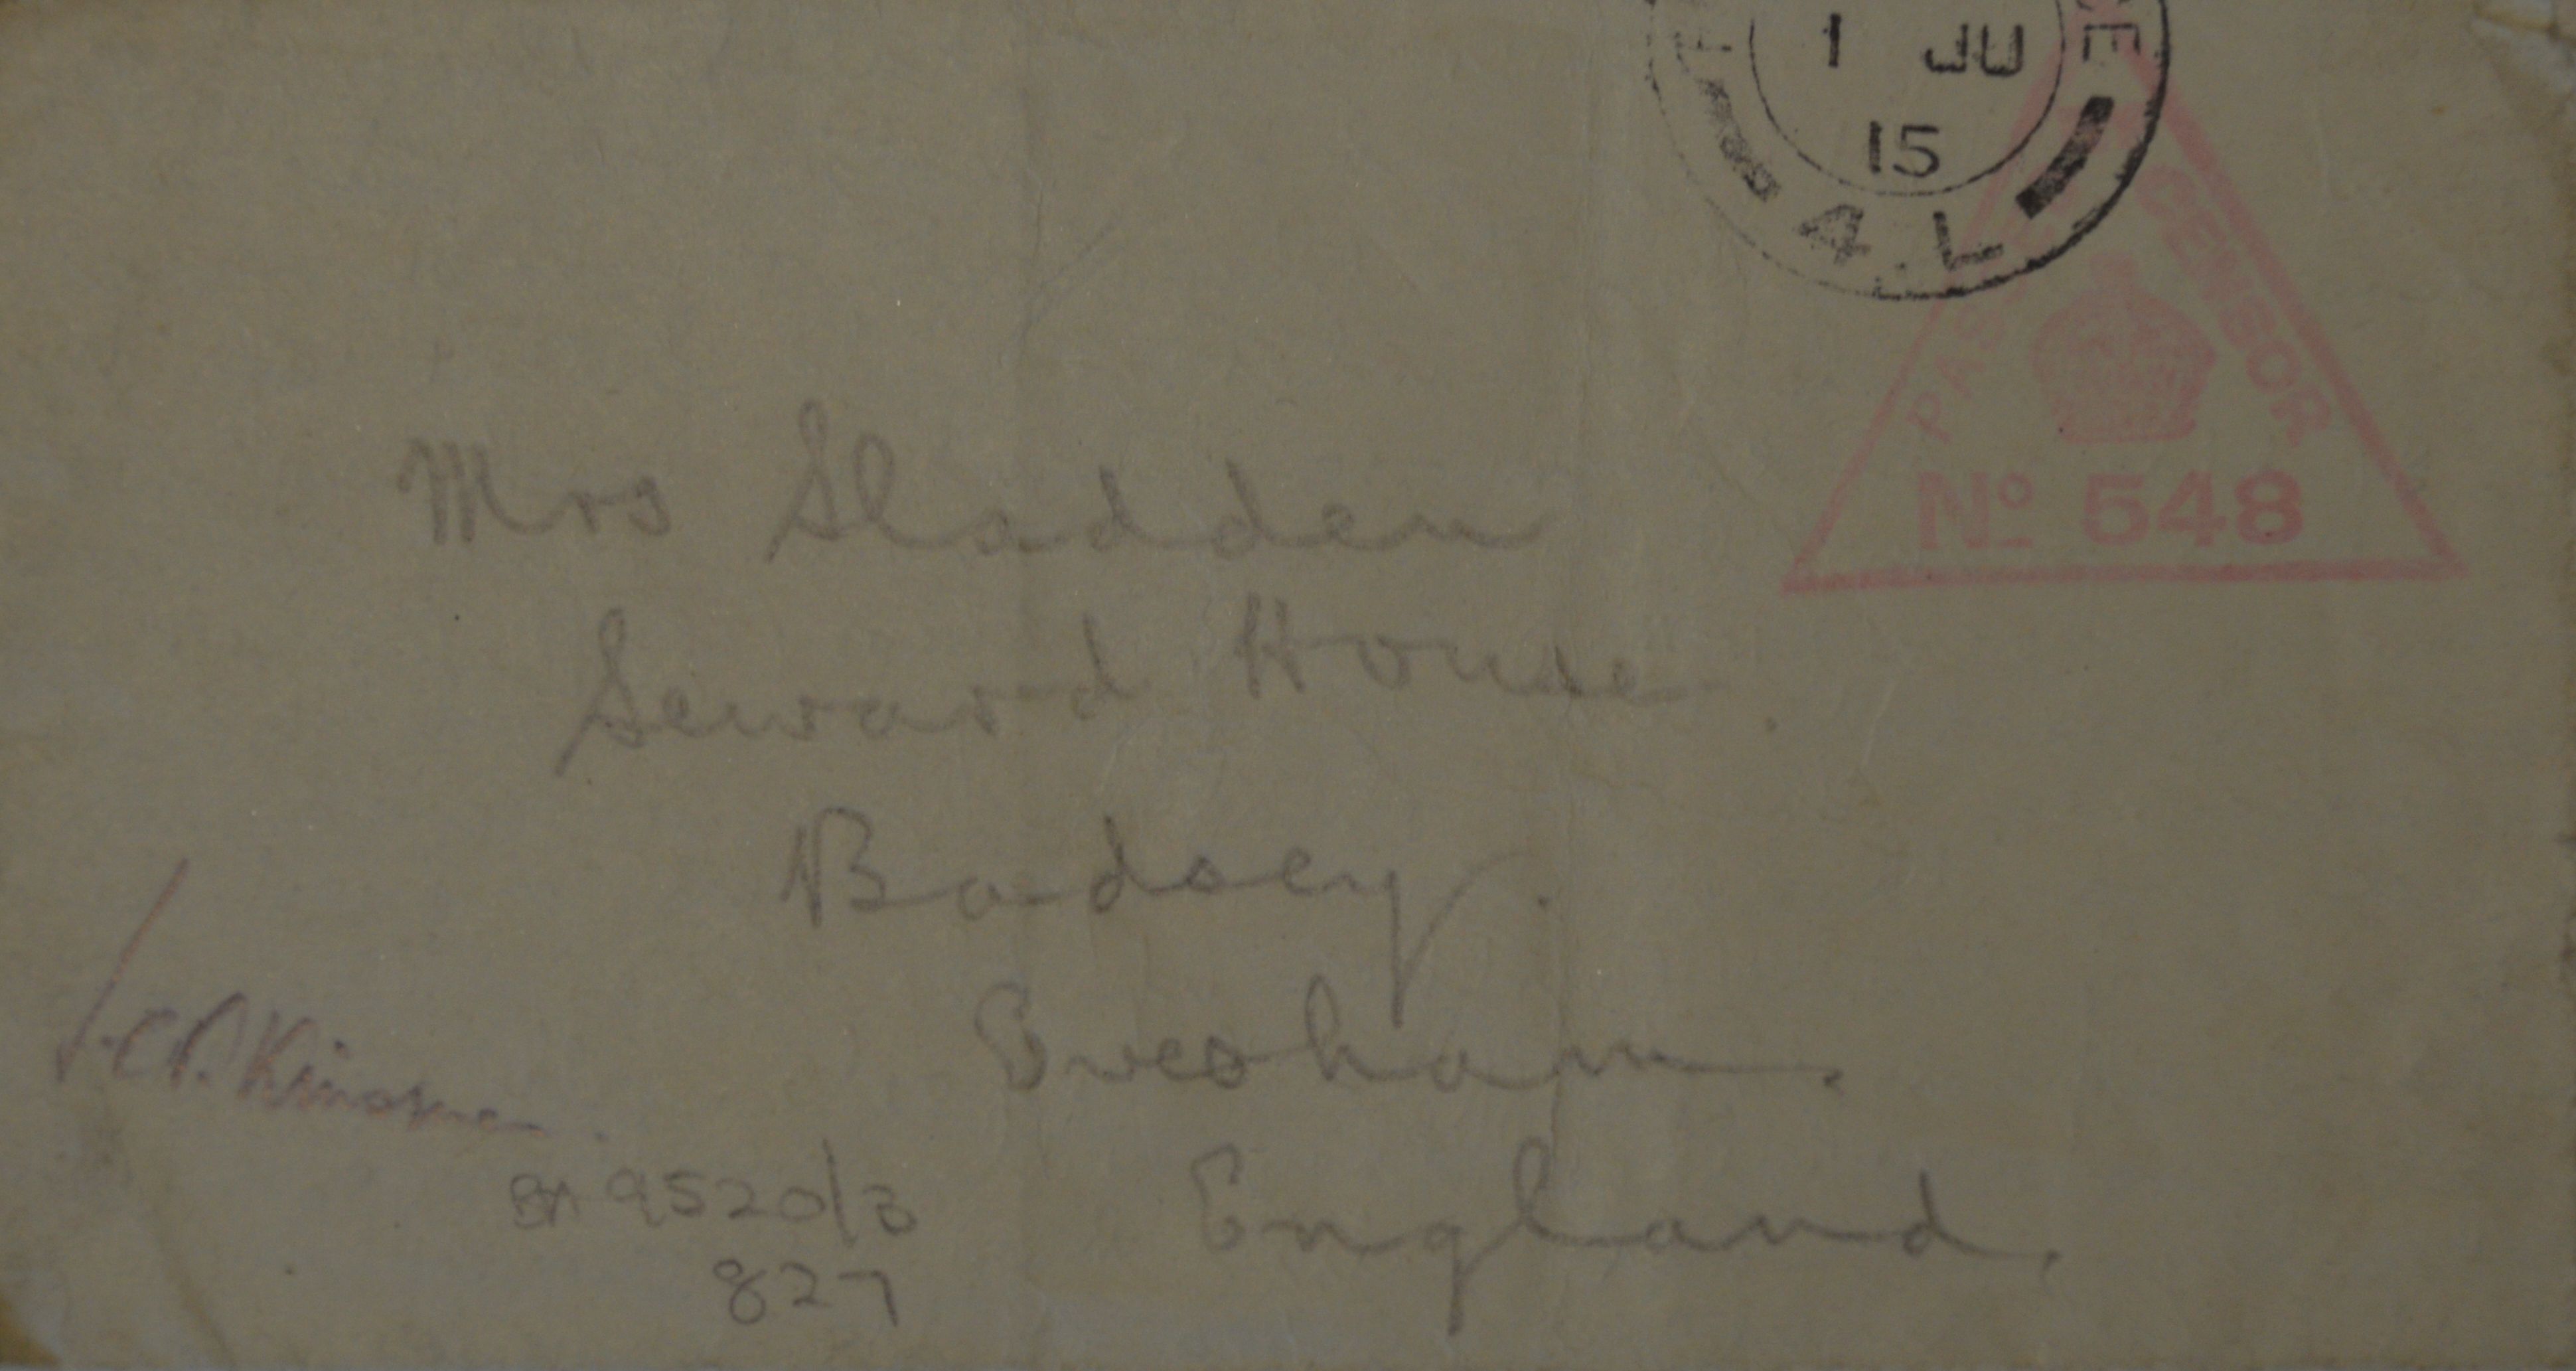 CE
1 JU
15
4 L
PASSED CENSOR
No 548
Mrs Sladden
Seward House.
Badsey.
Evesham.
England.
BA 9520/3
827